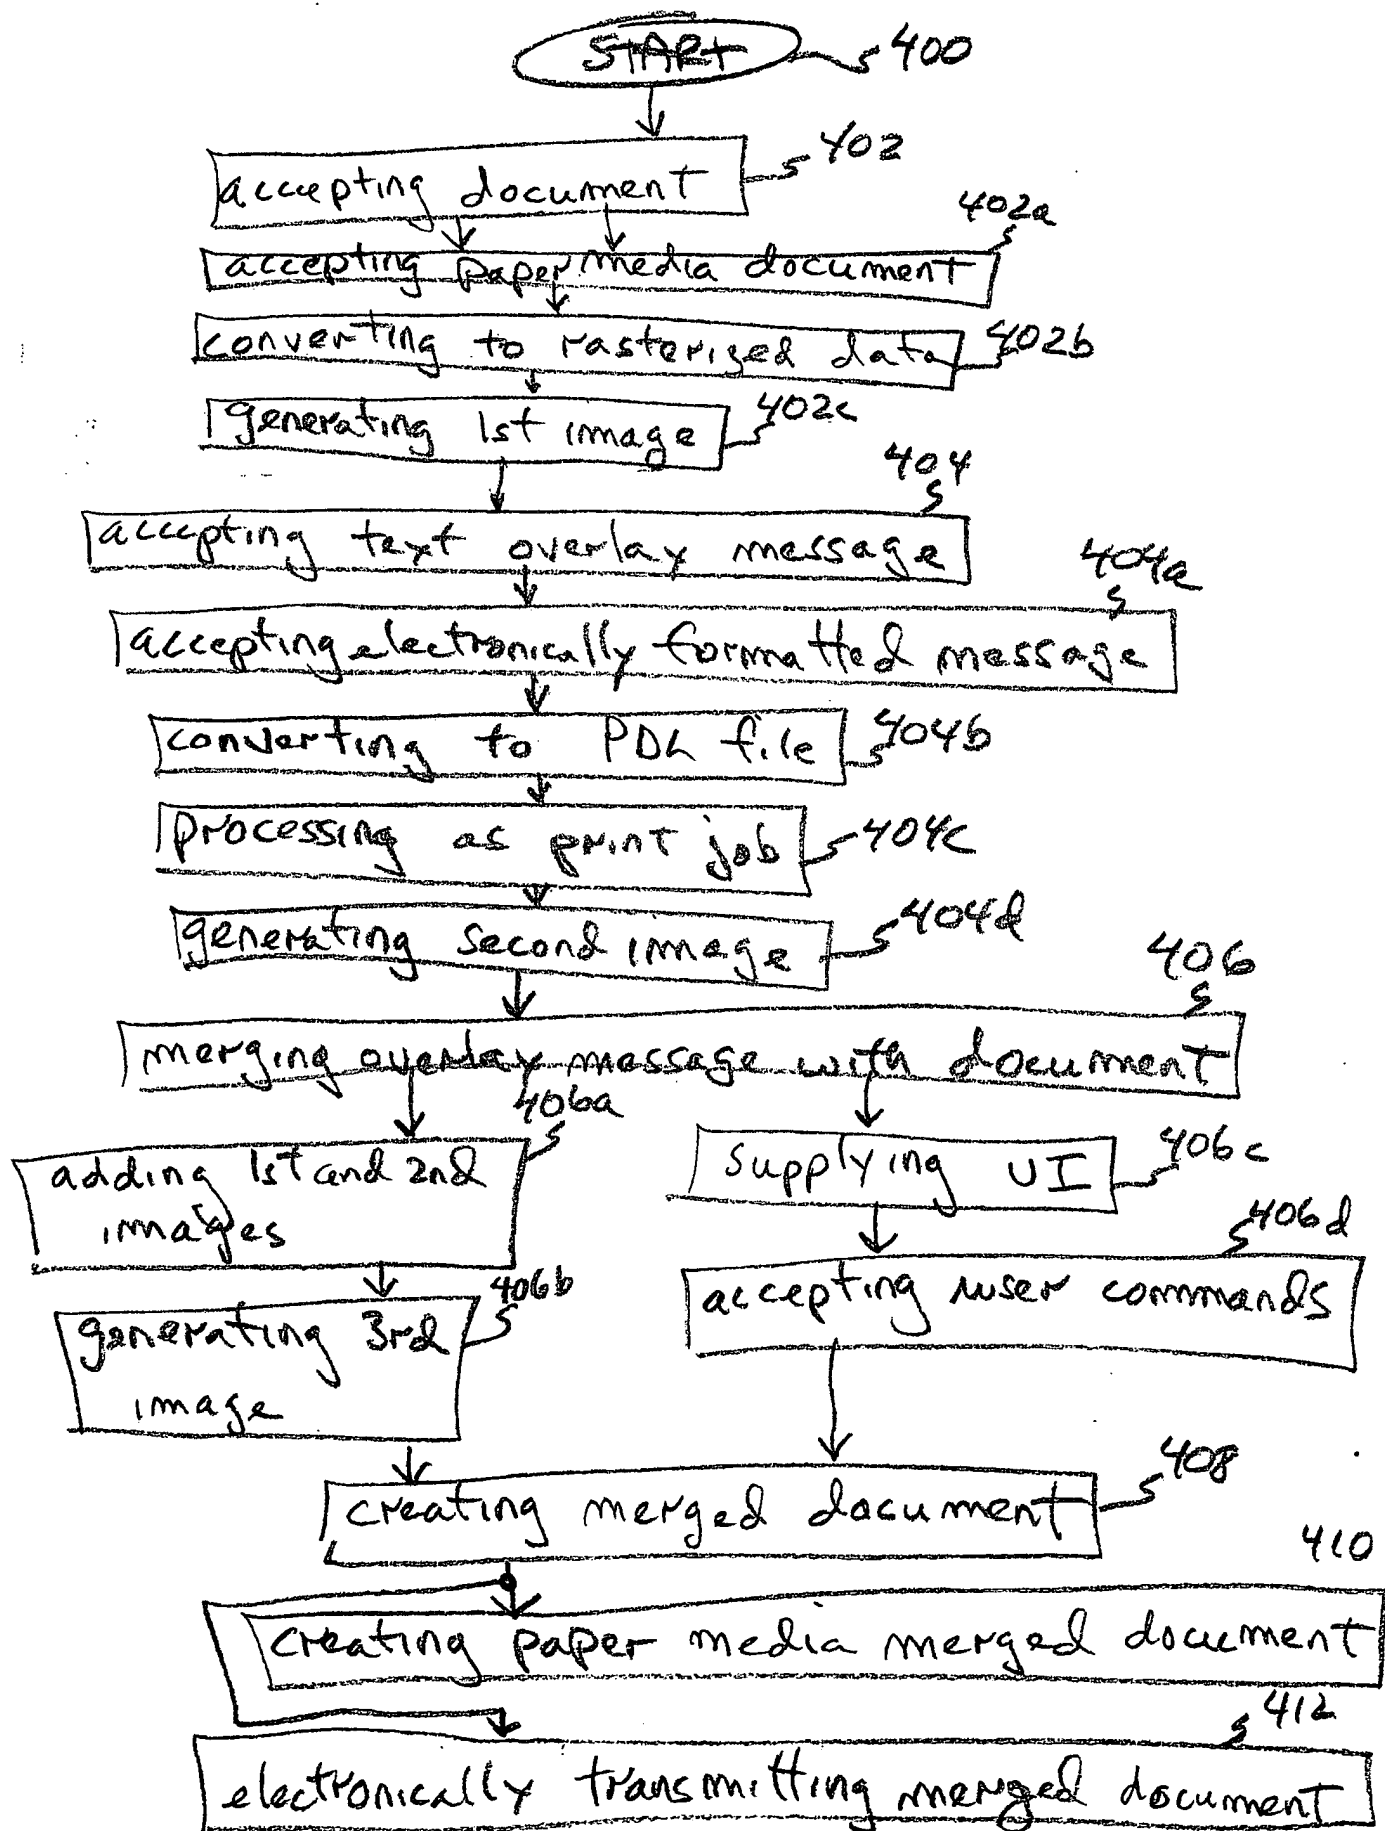 START 400
402
accepting document
402a
accepting paper media document
converting to rasterized data 402b
generating 1st image 402c
404
accepting text overlay message
404a
accepting electronically formatted message
converting to PDL file 404b
processing as print job 404c
generating second image 404d
406
merging overlay message with document
406a
adding 1st and 2nd
images
406b
generating 3rd
image
supplying UI 406c
406d
accepting user commands
408
creating merged document
410
creating paper media merged document
412
electronically transmitting merged document